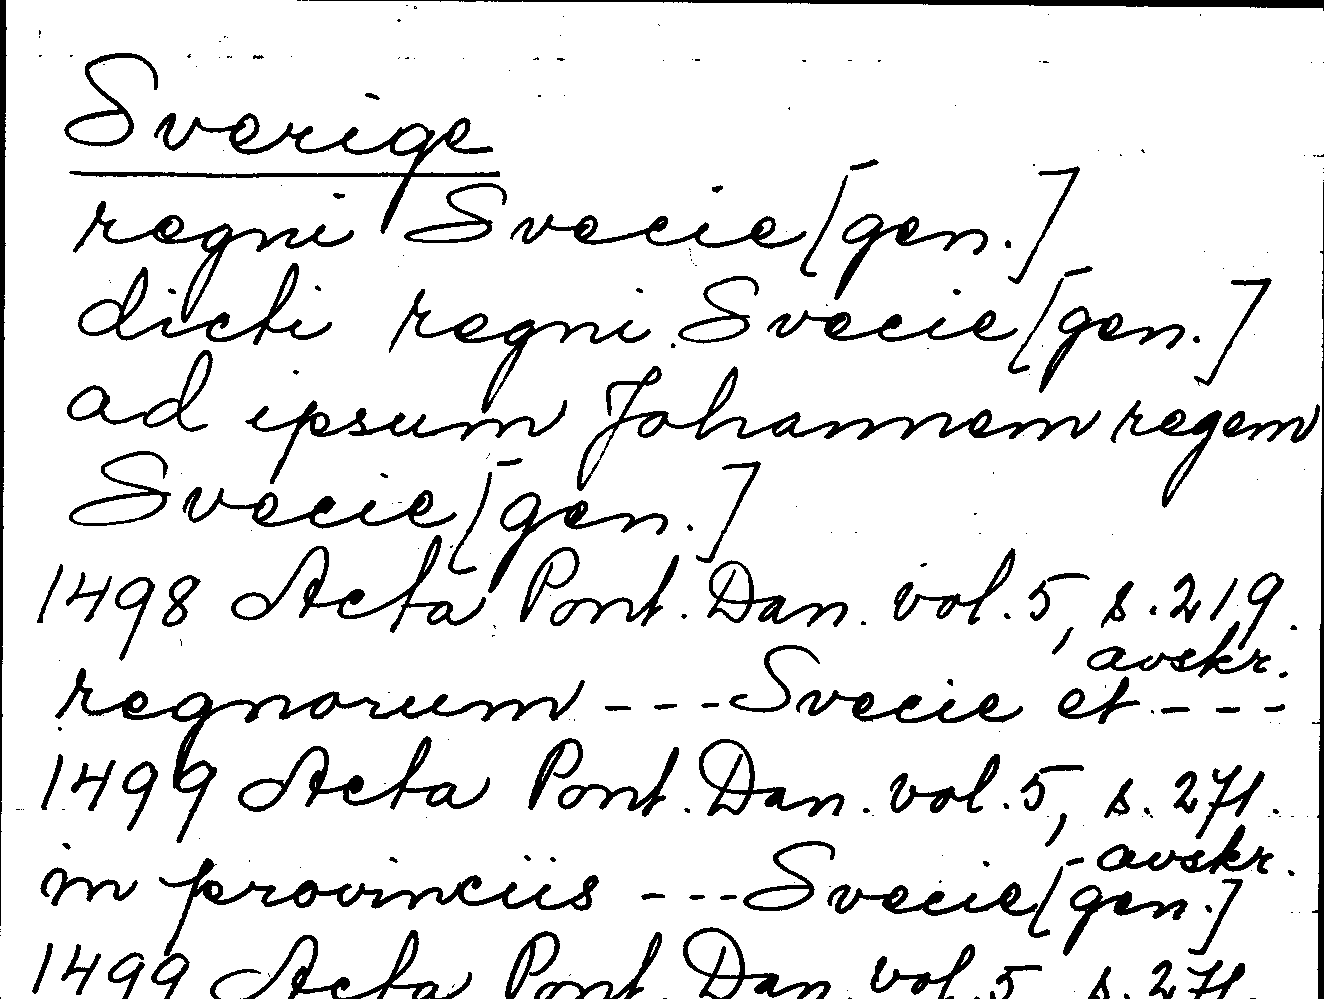 Sverige
regni Svecie [gen.]
dicti regni Svecie [gen.]
ad ipsum Johannem regem
Svecie [gen.]
1498 Acta Pont. Dan. vol. 5, s. 219.
avskr.
regnorum --- Svecie et ---
1499 Acta Pont. Dan. vol. 5, s. 271.
avskr.
in provinciis --- Svecie [gen.]
1499 Acta Pont. Dan. vol. 5 s. 271.